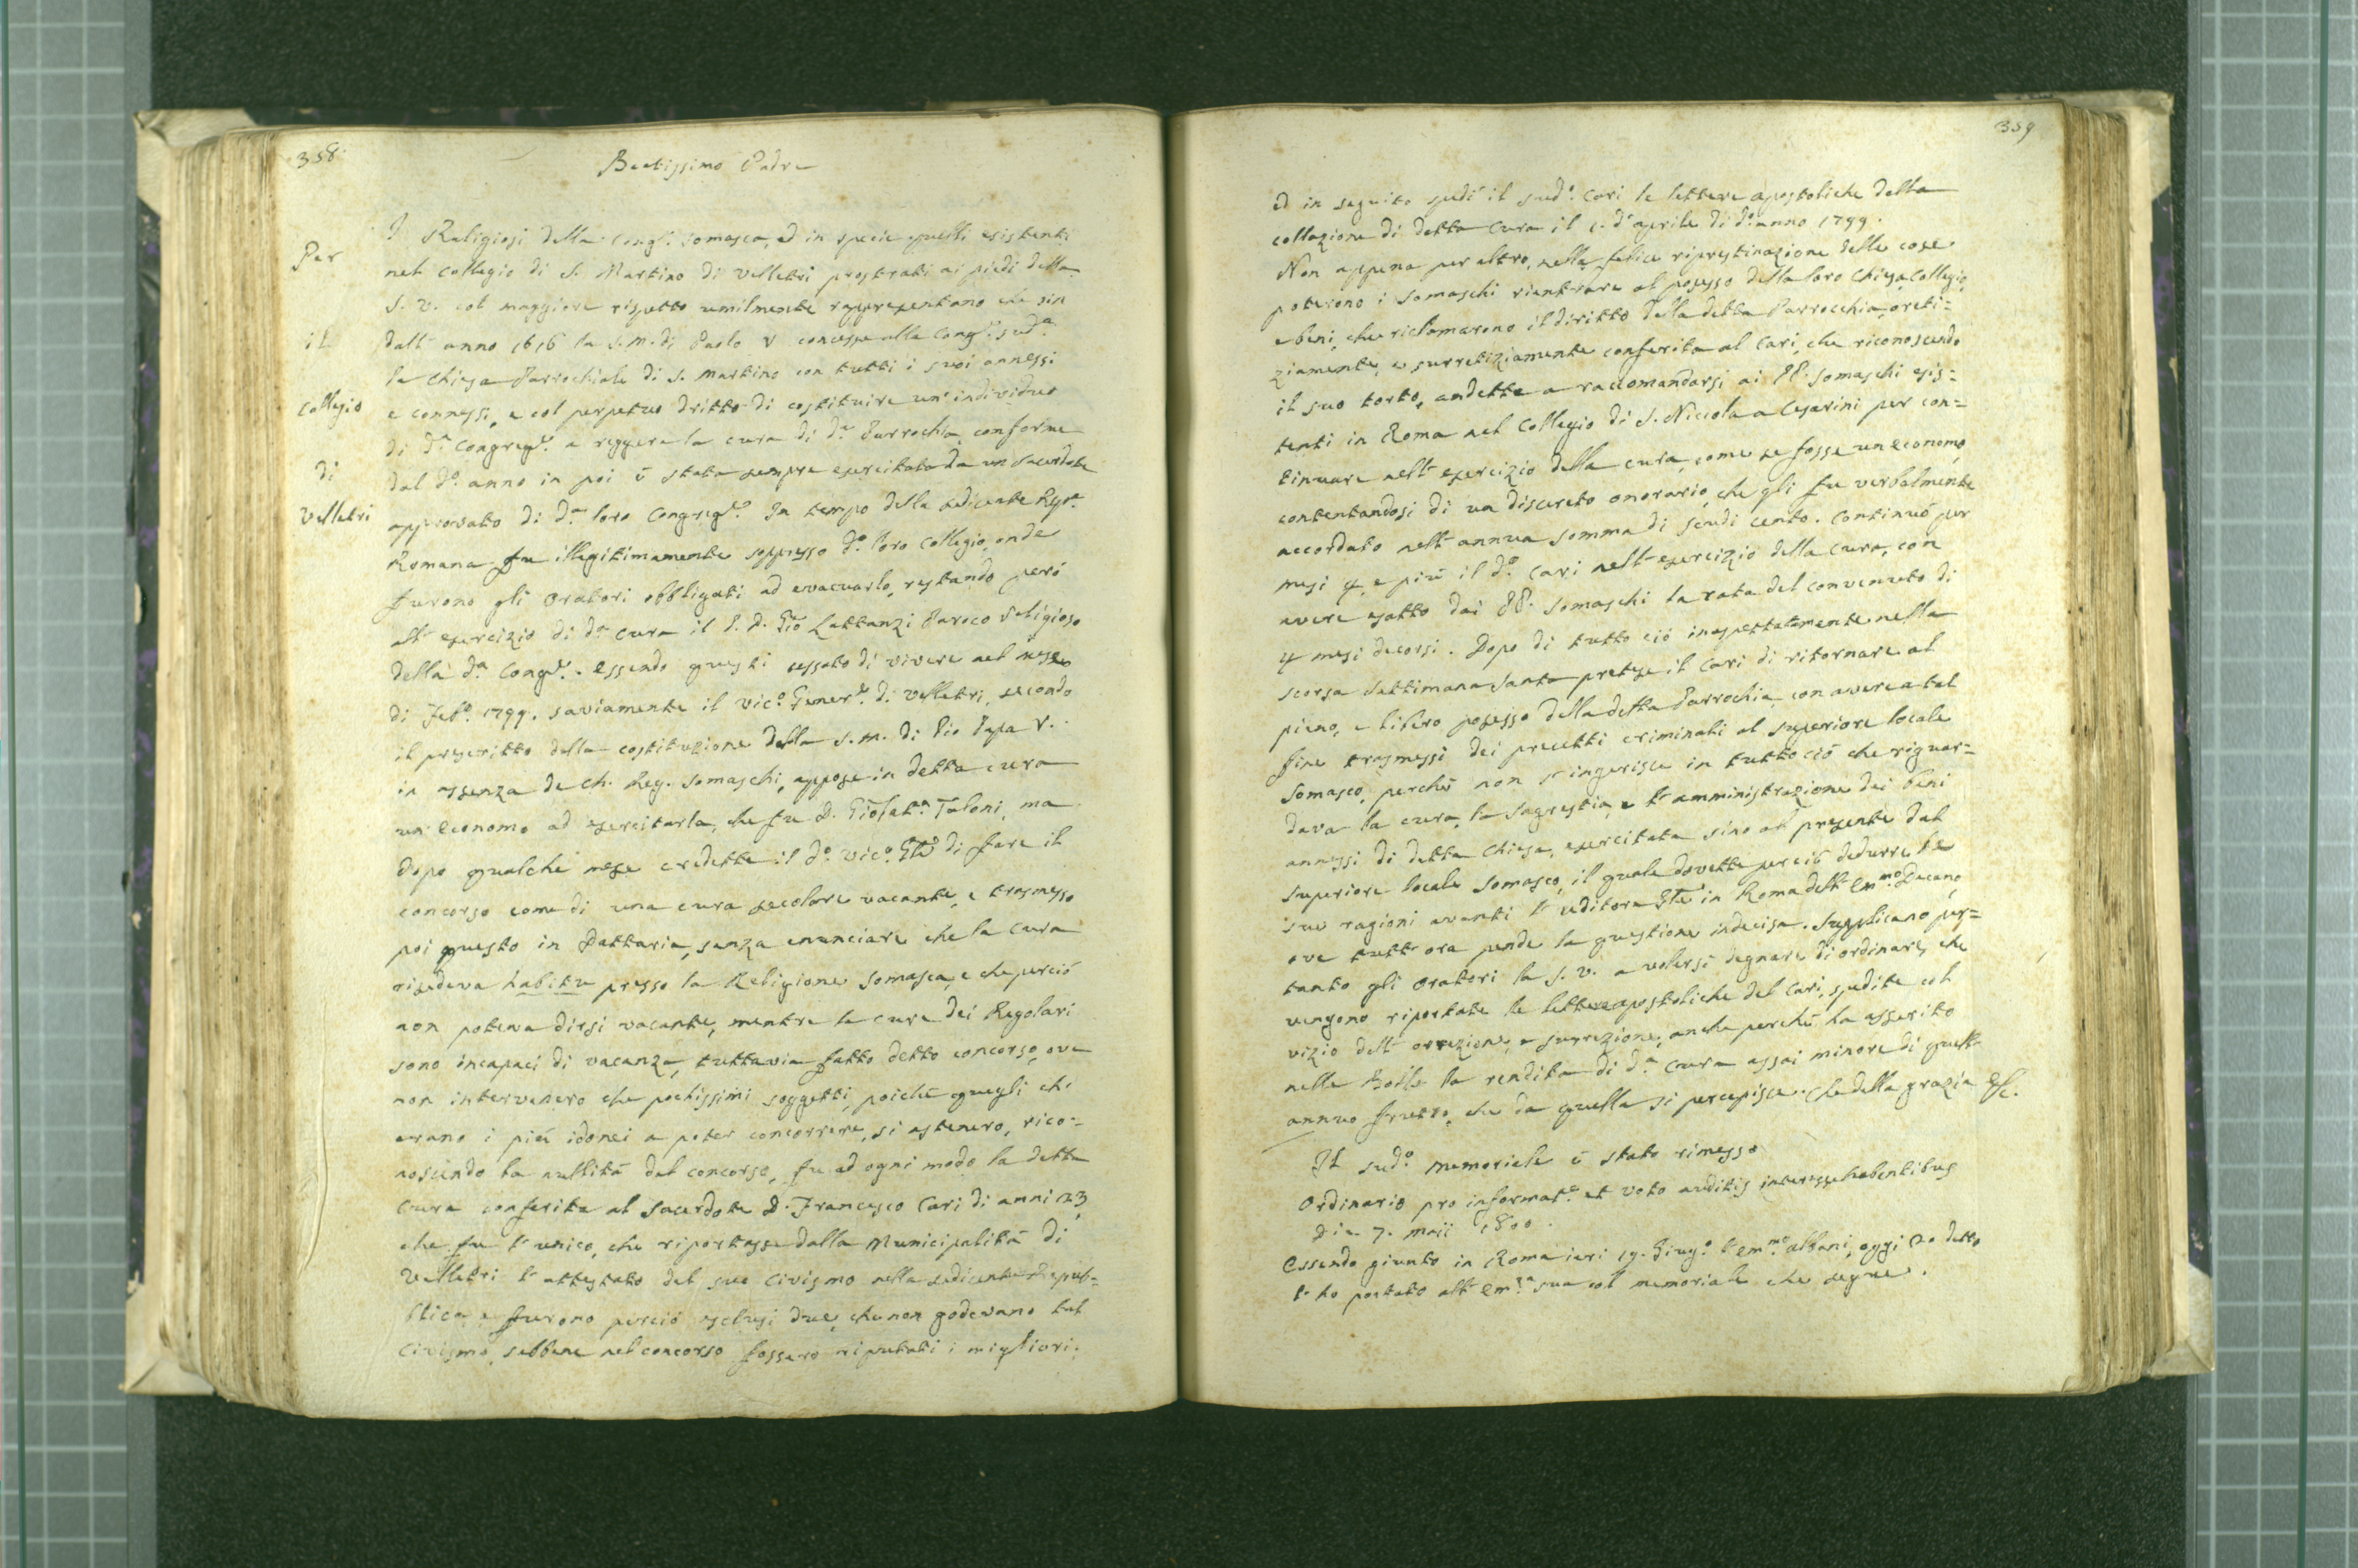 358.
Beatissimo Padre
Per il Collegio di Velletri
I Religiosi della Congr.ᵉ Somasca, ed in specie quelli esistenti
nel Collegio di S. Martino di Velletri prostrati ai piedi della
S. V. col maggiore rispetto umilmente rappresentano che sin
dall' anno 1616 la S. M. di Paolo V concesse alla Cong.ᵉ sud.ᵃ
la Chiesa Parrochiale di S. Martino con tutti i suoi annessi
e connessi, e col perpetuo dritto di costituire un' individuo
di d.ᵃ Congreg.ᵉ a reggere la cura di d.ᵃ Parrochia, conforme
dal d.º anno in poi è stata sempre esercitata da un Sacerdote
approvato di d.ᵃ loro Congreg.ᵉ In tempo della sedicente Rep.ᵃ
Romana fu illegitimamente soppresso d.º loro Collegio, onde
furono gli Oratori obbligati ad evacuarlo, restando però
all' esercizio di d.ᵃ cura il P. D. Gio Lattanzi Paroco Religioso
della d.ᵃ Cong.ᵉ. Essendo questi cessato di vivere nel mese
di Feb.º 1799. saviamente il Vic.º Gener.ᵉ di Velletri, secondo
il prescritto della costituzione della S. M. di Pio Papa V.
in assenza de Ch. Reg. Somaschi, appose in detta cura
un' Economo ad esercitarla, che fu D. Taloni, ma
dopo qualche mese credette il d.º Vic.º Gnle di fare il
concorso come di una cura secolare vacante, e trasmesso
poi questo in Dattaria, senza enunciare che la cura
risedeva habitu presso la Religione Somasca, e che perciò
non poteva dirsi vacante, mentre le cure dei Regolari
sono incapaci di vacanza, tuttavia fatto detto concorso, ove
non intervenero che pochissimi soggetti, poichè quegli che
erano i più idonei a poter concorrere, si astenero, rico=
noscendo la nullità del concorso, fu ad ogni modo la detta
Cura conferita al Sacerdote D. Francesco Cari di anni 23
che fu l' unico, che riportasse dalla Municipalità di
Velletri l' attestato del suo Civismo nella sedicente Repub=
blica, e furono perciò esclusi due, che non godevano tal
Civismo, sebbene nel concorso fossero riputati i migliori.
359
ed in seguito spedì il sud.º Cari le lettere apostoliche della
collazione di detta Cura il 1. d' aprile di d.º anno 1799.
Non appena per altro, nella felice ripristinazione delle cose
poterono i Somaschi rientrare al possesso della loro Chiesa, Collegio,
e beni, che riclamarono il diritto della detta Parrocchia, oreti=
ziamente, e surretiziamente conferita al Cari, che riconoscendo
il suo torto, andette a raccomandarsi ai PP. Somaschi esis=
tenti in Roma nel Collegio di S. Niccola a Cesarini per con=
tinuare nell' esercizio della cura, come se fosse un economo,
contentandosi di un discreto onorario, che gli fu verbalmente
accordato nell' annua somma di scudi cento. Continuò per
mesi 4, e più il d.º Cari nell' esercizio della cura, con
avere esatto dai PP. Somaschi la rata del convenuto di
4 mesi decorsi. Dopo di tutto ciò inaspettatamente nella
scorsa Settimana Santa pretese il Cari di ritornare al
pieno, e libero possesso della detta Parrochia, con avere a tal
fine trasmessi dei precetti criminali al Superiore locale
Somasco, perchè non s' ingerisce in tutto ciò che riguar=
dava la cura, la Sagrestia, e l' amministrazione dei beni
annessi di detta Chiesa, esercitata sino al presente dal
Superiore locale Somasco, il quale dovette perciò dedurre le
sue ragioni avanti l' uditore Gnle in Roma dell' Em.ᵐᵒ Decano,
ove tutt' ora pende la questione indecisa. Supplicano per=
tanto gli Oratori la S. V. a volersi degnare di ordinare, che
vengono riportate le lettere apostoliche del Cari, spedite col
vizio dell' orrezione, e surrezione, anche perchè ha asserito
nelle Bolle la rendita di d.ᵃ Cura assai minore di quell'
annuo frutto, che da quella si percepisce. Che della grazia &c.
Il sud.º memoriale è stato rimesso
Ordinario pro informat.ᵉ et voto auditis interesse habentibus
Die 7. Maii 1800.
Essendo giunto in Roma ieri 19. Giug.º l' Em.ᵐᵒ Albani, oggi 20 detto
l' ho portato all' Em.ᶻᵃ sua col memoriale che segue.